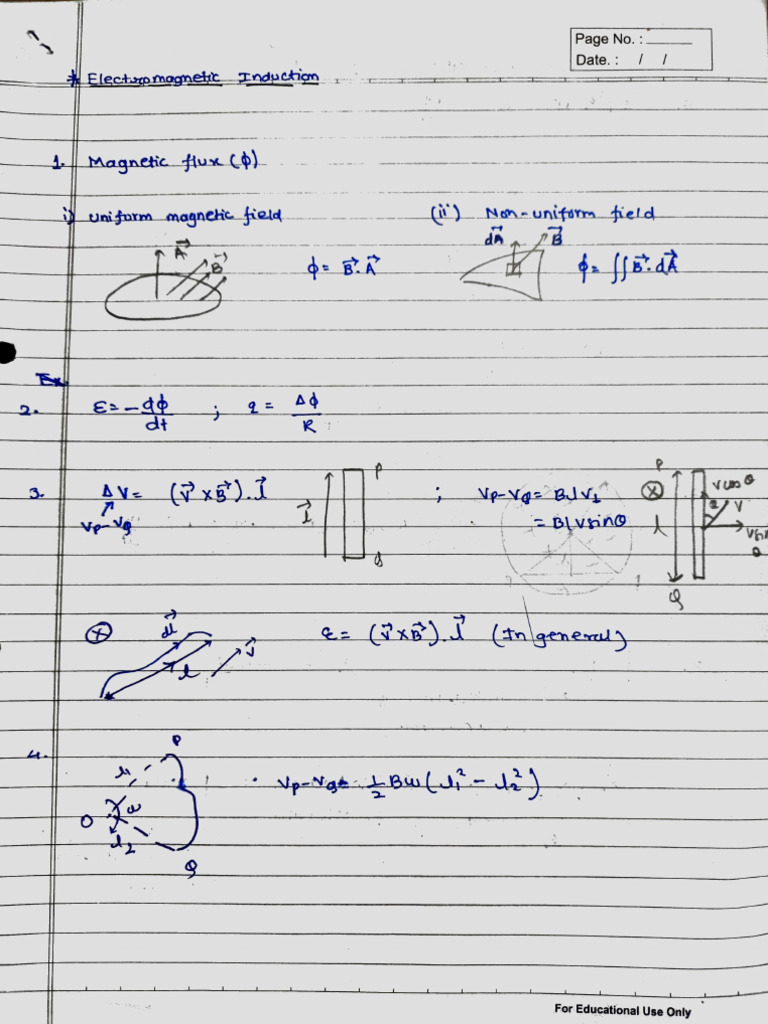 Page No. :
Date. : / /
* Electromagnetic Induction
1. Magnetic flux (ϕ)
i) uniform magnetic field
(ii) Non-uniform field
A⃗
B⃗
ϕ = B⃗ . A⃗
dA⃗
B⃗
ϕ = ∬ B⃗ . dA⃗
2. ε = -dϕ/dt ; q = Δϕ/R
3. ΔV = (V⃗ × B⃗) . l⃗
Vp - VQ
l⃗
P
Q
; Vp - VQ = BlV⊥
= BlVsinθ
P
l
Q
Vcosθ
V
ε = (V⃗ × B⃗) . l⃗ (In general)
dl⃗
l
V⃗
4.
P
l1
O
ω
l2
Q
Vp - VQ = 1/2 Bω (l1² - l2²)
For Educational Use Only